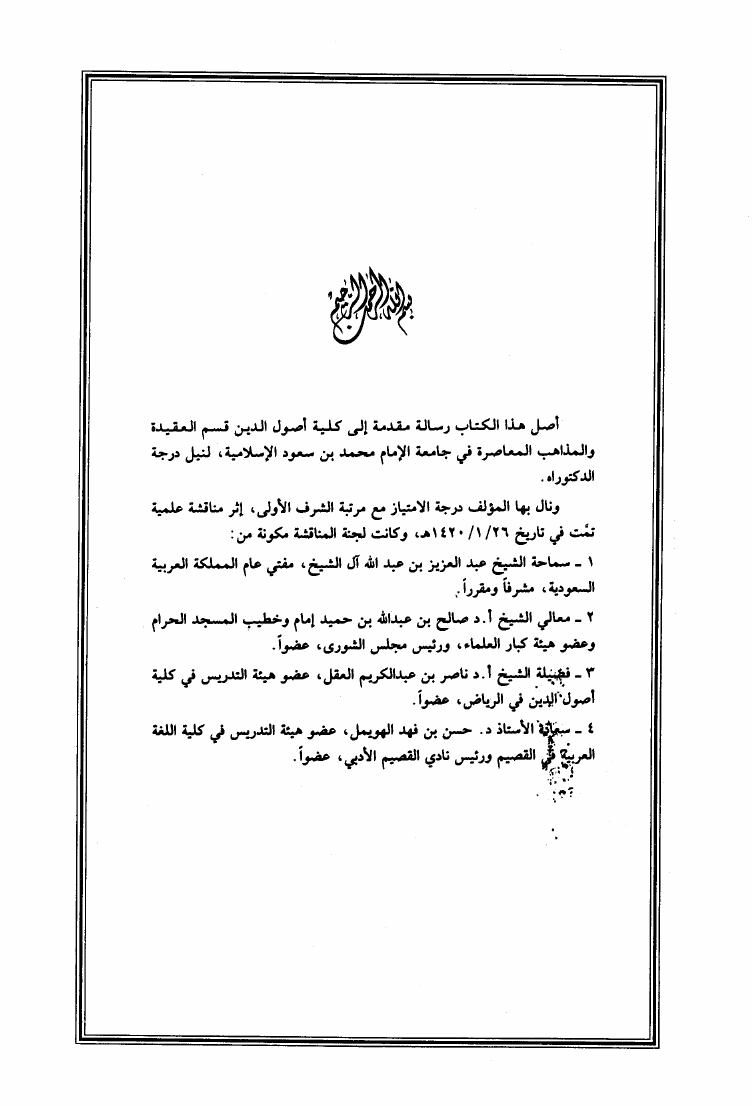 بسم الله الرحمن الرحيم
أصل هذا الكتاب رسالة مقدمة إلى كلية أصول الدين قسم العقيدة
والمذاهب المعاصرة في جامعة الإمام محمد بن سعود الإسلامية، لنيل درجة
الدكتوراه.
ونال بها المؤلف درجة الامتياز مع مرتبة الشرف الأولى، إثر مناقشة علمية
تمّت في تاريخ ١٤٢٠/١/٢٦هـ، وكانت لجنة المناقشة مكونة من:
١ - سماحة الشيخ عبد العزيز بن عبد الله آل الشيخ، مفتي عام المملكة العربية
السعودية، مشرفاً ومقرراً.
٢ - معالي الشيخ أ.د صالح بن عبدالله بن حميد إمام وخطيب المسجد الحرام
وعضو هيئة كبار العلماء، ورئيس مجلس الشورى، عضواً.
٣ - فضيلة الشيخ أ.د ناصر بن عبدالكريم العقل، عضو هيئة التدريس في كلية
أصول الدين في الرياض، عضواً.
٤ - سعادة الأستاذ د. حسن بن فهد الهويمل، عضو هيئة التدريس في كلية اللغة
العربية في القصيم ورئيس نادي القصيم الأدبي، عضواً.